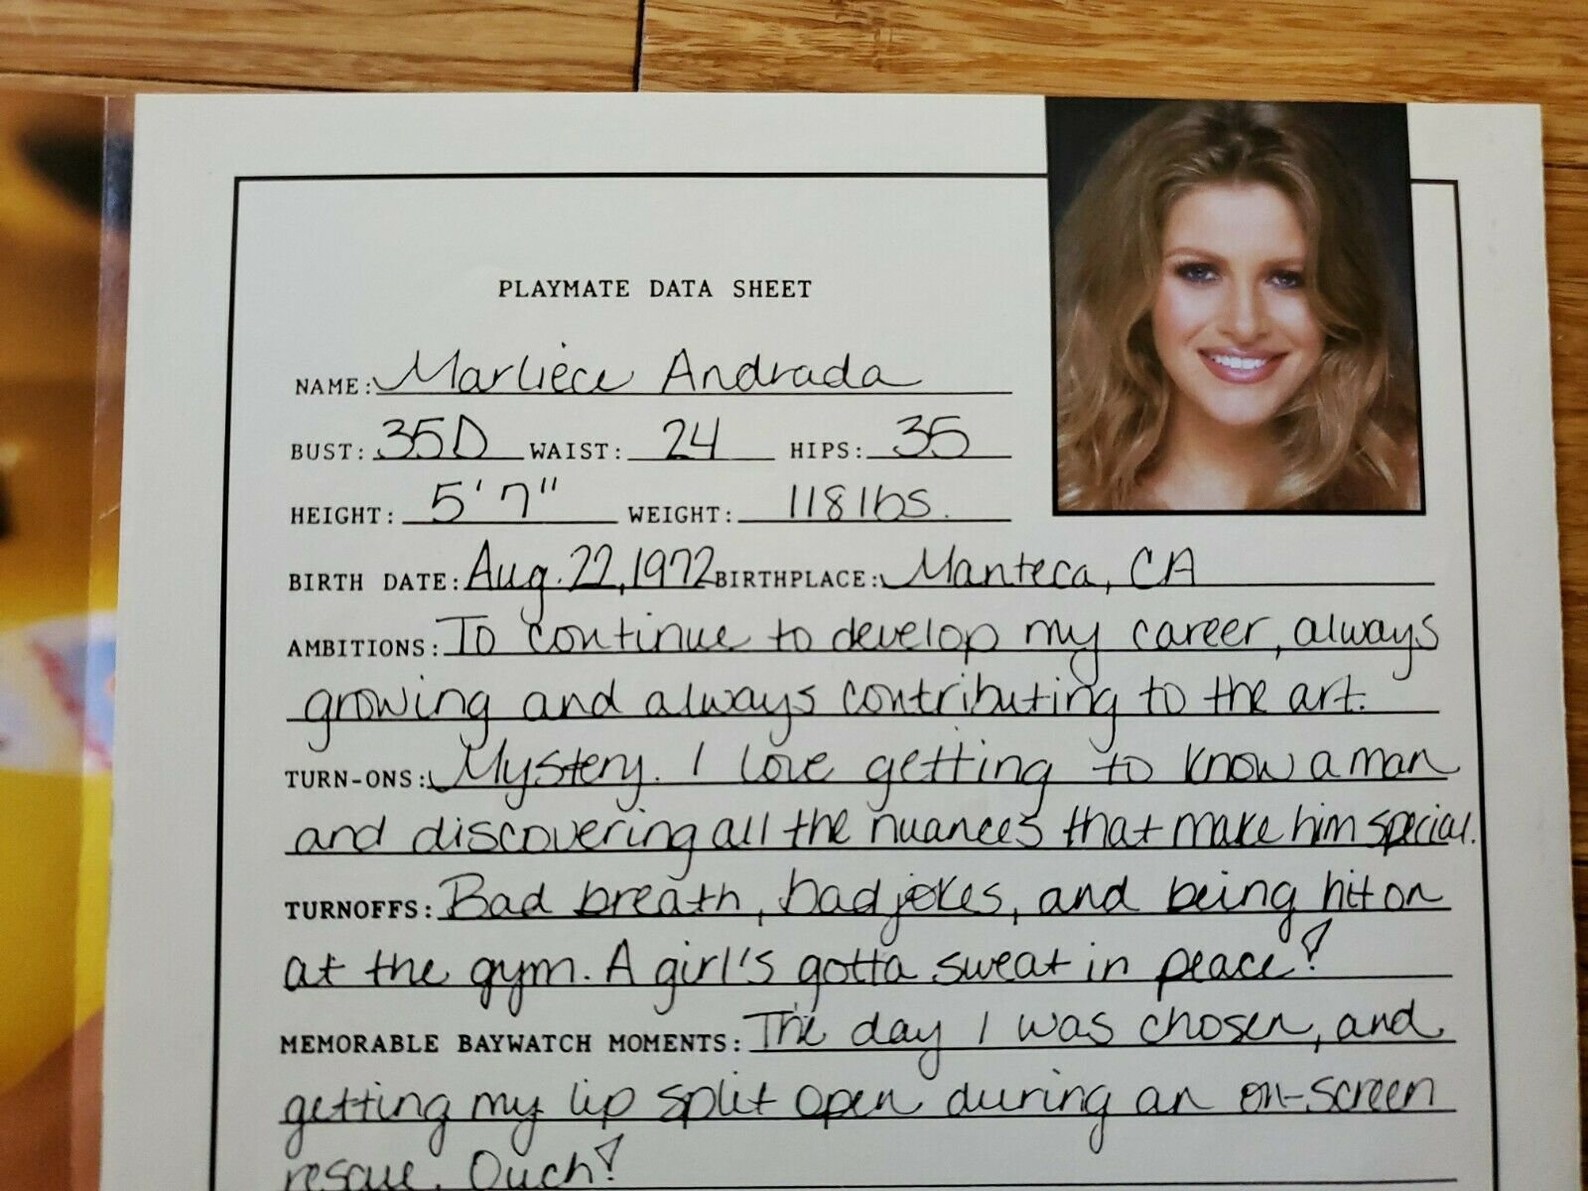 PLAYMATE DATA SHEET
NAME: Marliece Andrada
BUST: 35D WAIST: 24 HIPS: 35
HEIGHT: 5'7" WEIGHT: 118 lbs.
BIRTH DATE: Aug. 22, 1972 BIRTHPLACE: Manteca, CA
AMBITIONS: To continue to develop my career, always
growing and always contributing to the art.
TURN-ONS: Mystery. I love getting to know a man
and discovering all the nuances that make him special.
TURNOFFS: Bad breath, bad jokes, and being hit on
at the gym. A girl's gotta sweat in peace!
MEMORABLE BAYWATCH MOMENTS: The day I was chosen, and
getting my lip split open during an on-screen
rescue. Ouch!